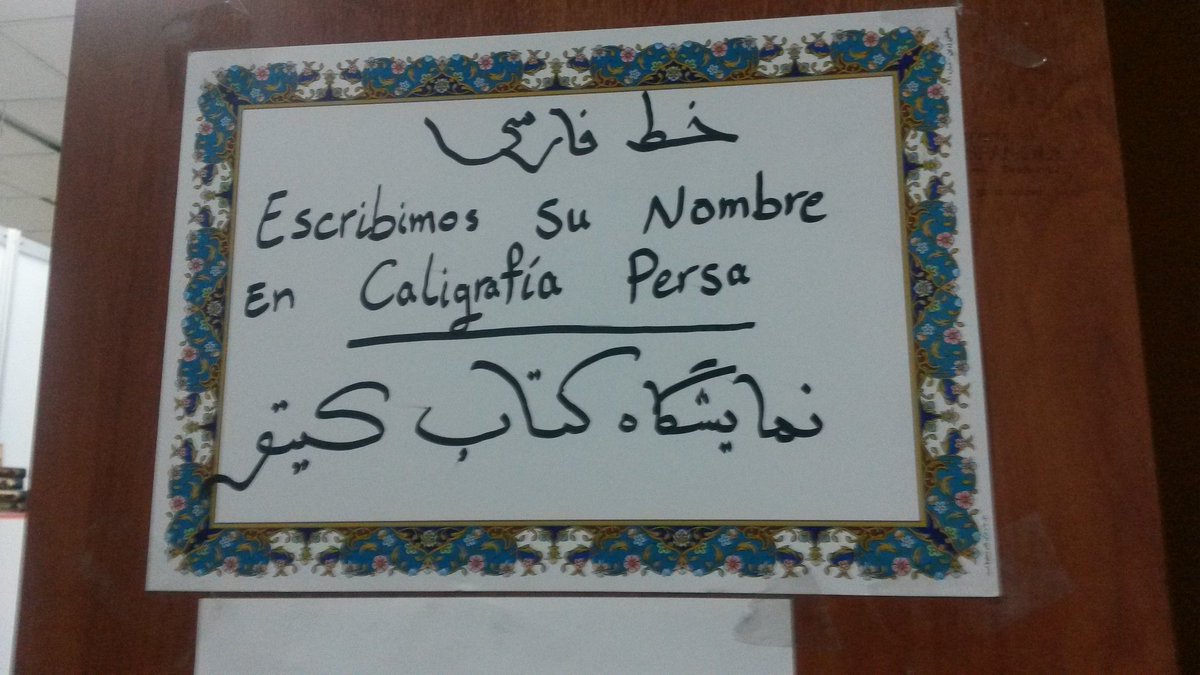 خط فارسی
Escribimos su Nombre
En Caligrafía Persa
نمایشگاه کتاب کیتو